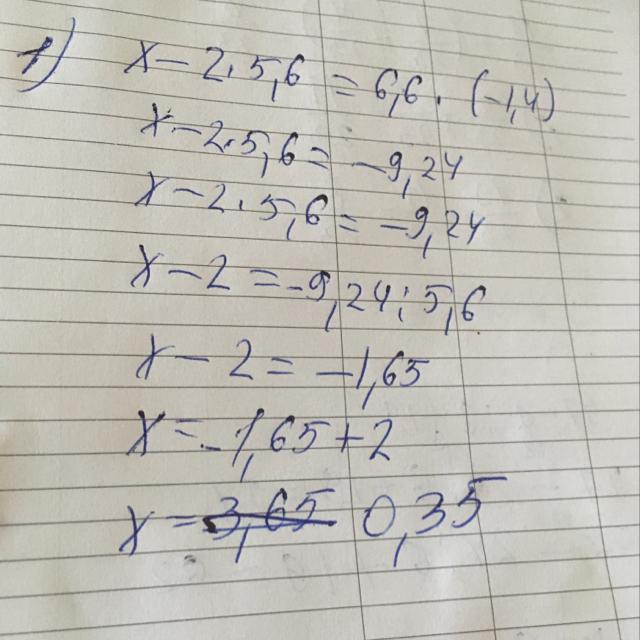 1) x - 2.5,6 = 6,6. (-1,4)
x - 2.5,6 = -9,24
x - 2.5,6 = -9,24
x - 2 = -9,24 : 5,6
x - 2 = -1,65
x = -1,65 + 2
x = 3,65 0,35